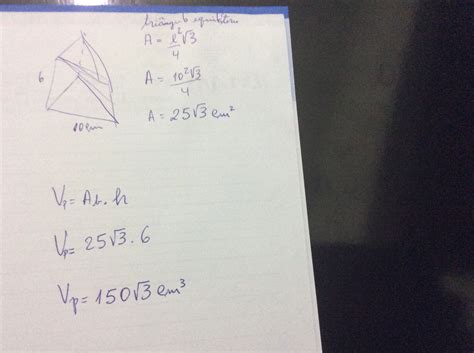 triângulo equilátero
A = l²√3/4
6
A = 10²√3/4
10cm
A = 25√3 cm²
Vp = Ab.h
Vp = 25√3 . 6
Vp = 150√3 cm³